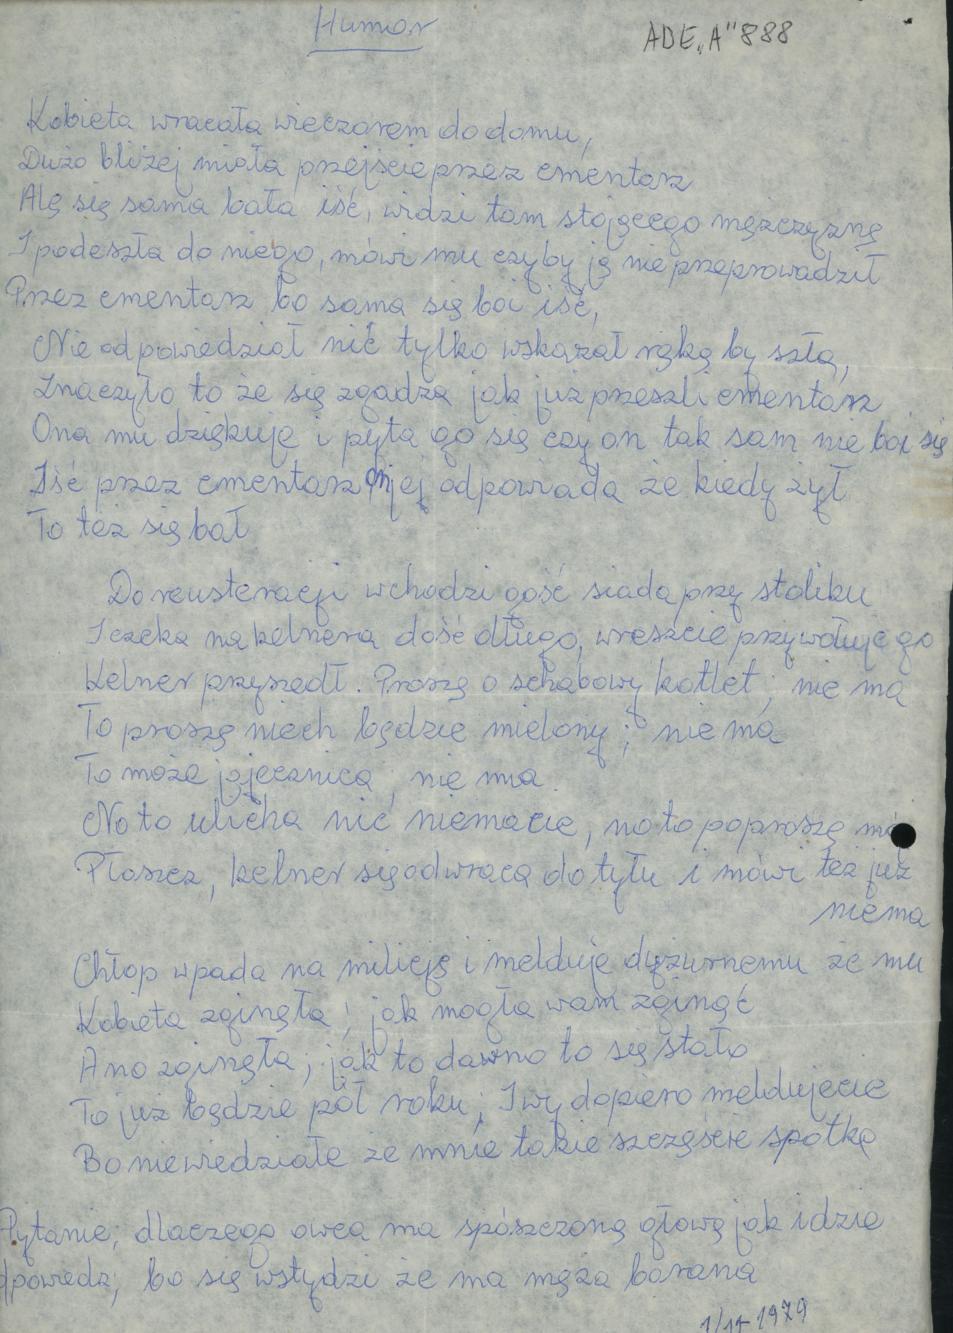 Humor
ADE„A"888
Kobieta wracała wieczorem do domu,
Dużo bliżej miała przejście przez cmentarz
Alę się sama bała iść, widzi tam stojącego mężczyznę
I podeszła do niego, mówi mu czyby ją nie przeprowadził
Przez cmentarz bo sama się boi iść,
Nie odpowiedział nić tylko wskazał ręką by szła,
Znaczyło to że się zgadza jak już przeszli cmentarz
Ona mu dziękuję i pyta go się czy on tak sam nie boi się
Iść przez cmentarz on jej odpowiada że kiedy żył
To też się bał
Do reusteracji wchodzi gość siada przy stoliku
I czeka na kelnera dość długo, wreszcie przywołuje go
Kelner przyszedł. Proszę o schabowy kotlet; nie ma
To proszę niech będzie mielony; nie ma
To może jajecznica, nie ma.
No to ulicha nić niemacie, no to poproszę mój
Płaszcz, kelner się odwraca do tyłu i mówi też już
niema
Chłop wpada na milicję i melduję dyżurnemu że mu
Kobieta zginęła; jak mogła wam zginąć
Ano zginęła; jak to dawno to się stało
To już będzie pół roku; I wy dopiero meldujecie
Bo niewiedziałe że mnie takie szczęście spotka
Pytanie; dlaczego owca ma spószczoną głowę jak idzie
dpowiedz; bo się wstydzi że ma męża barana
1979